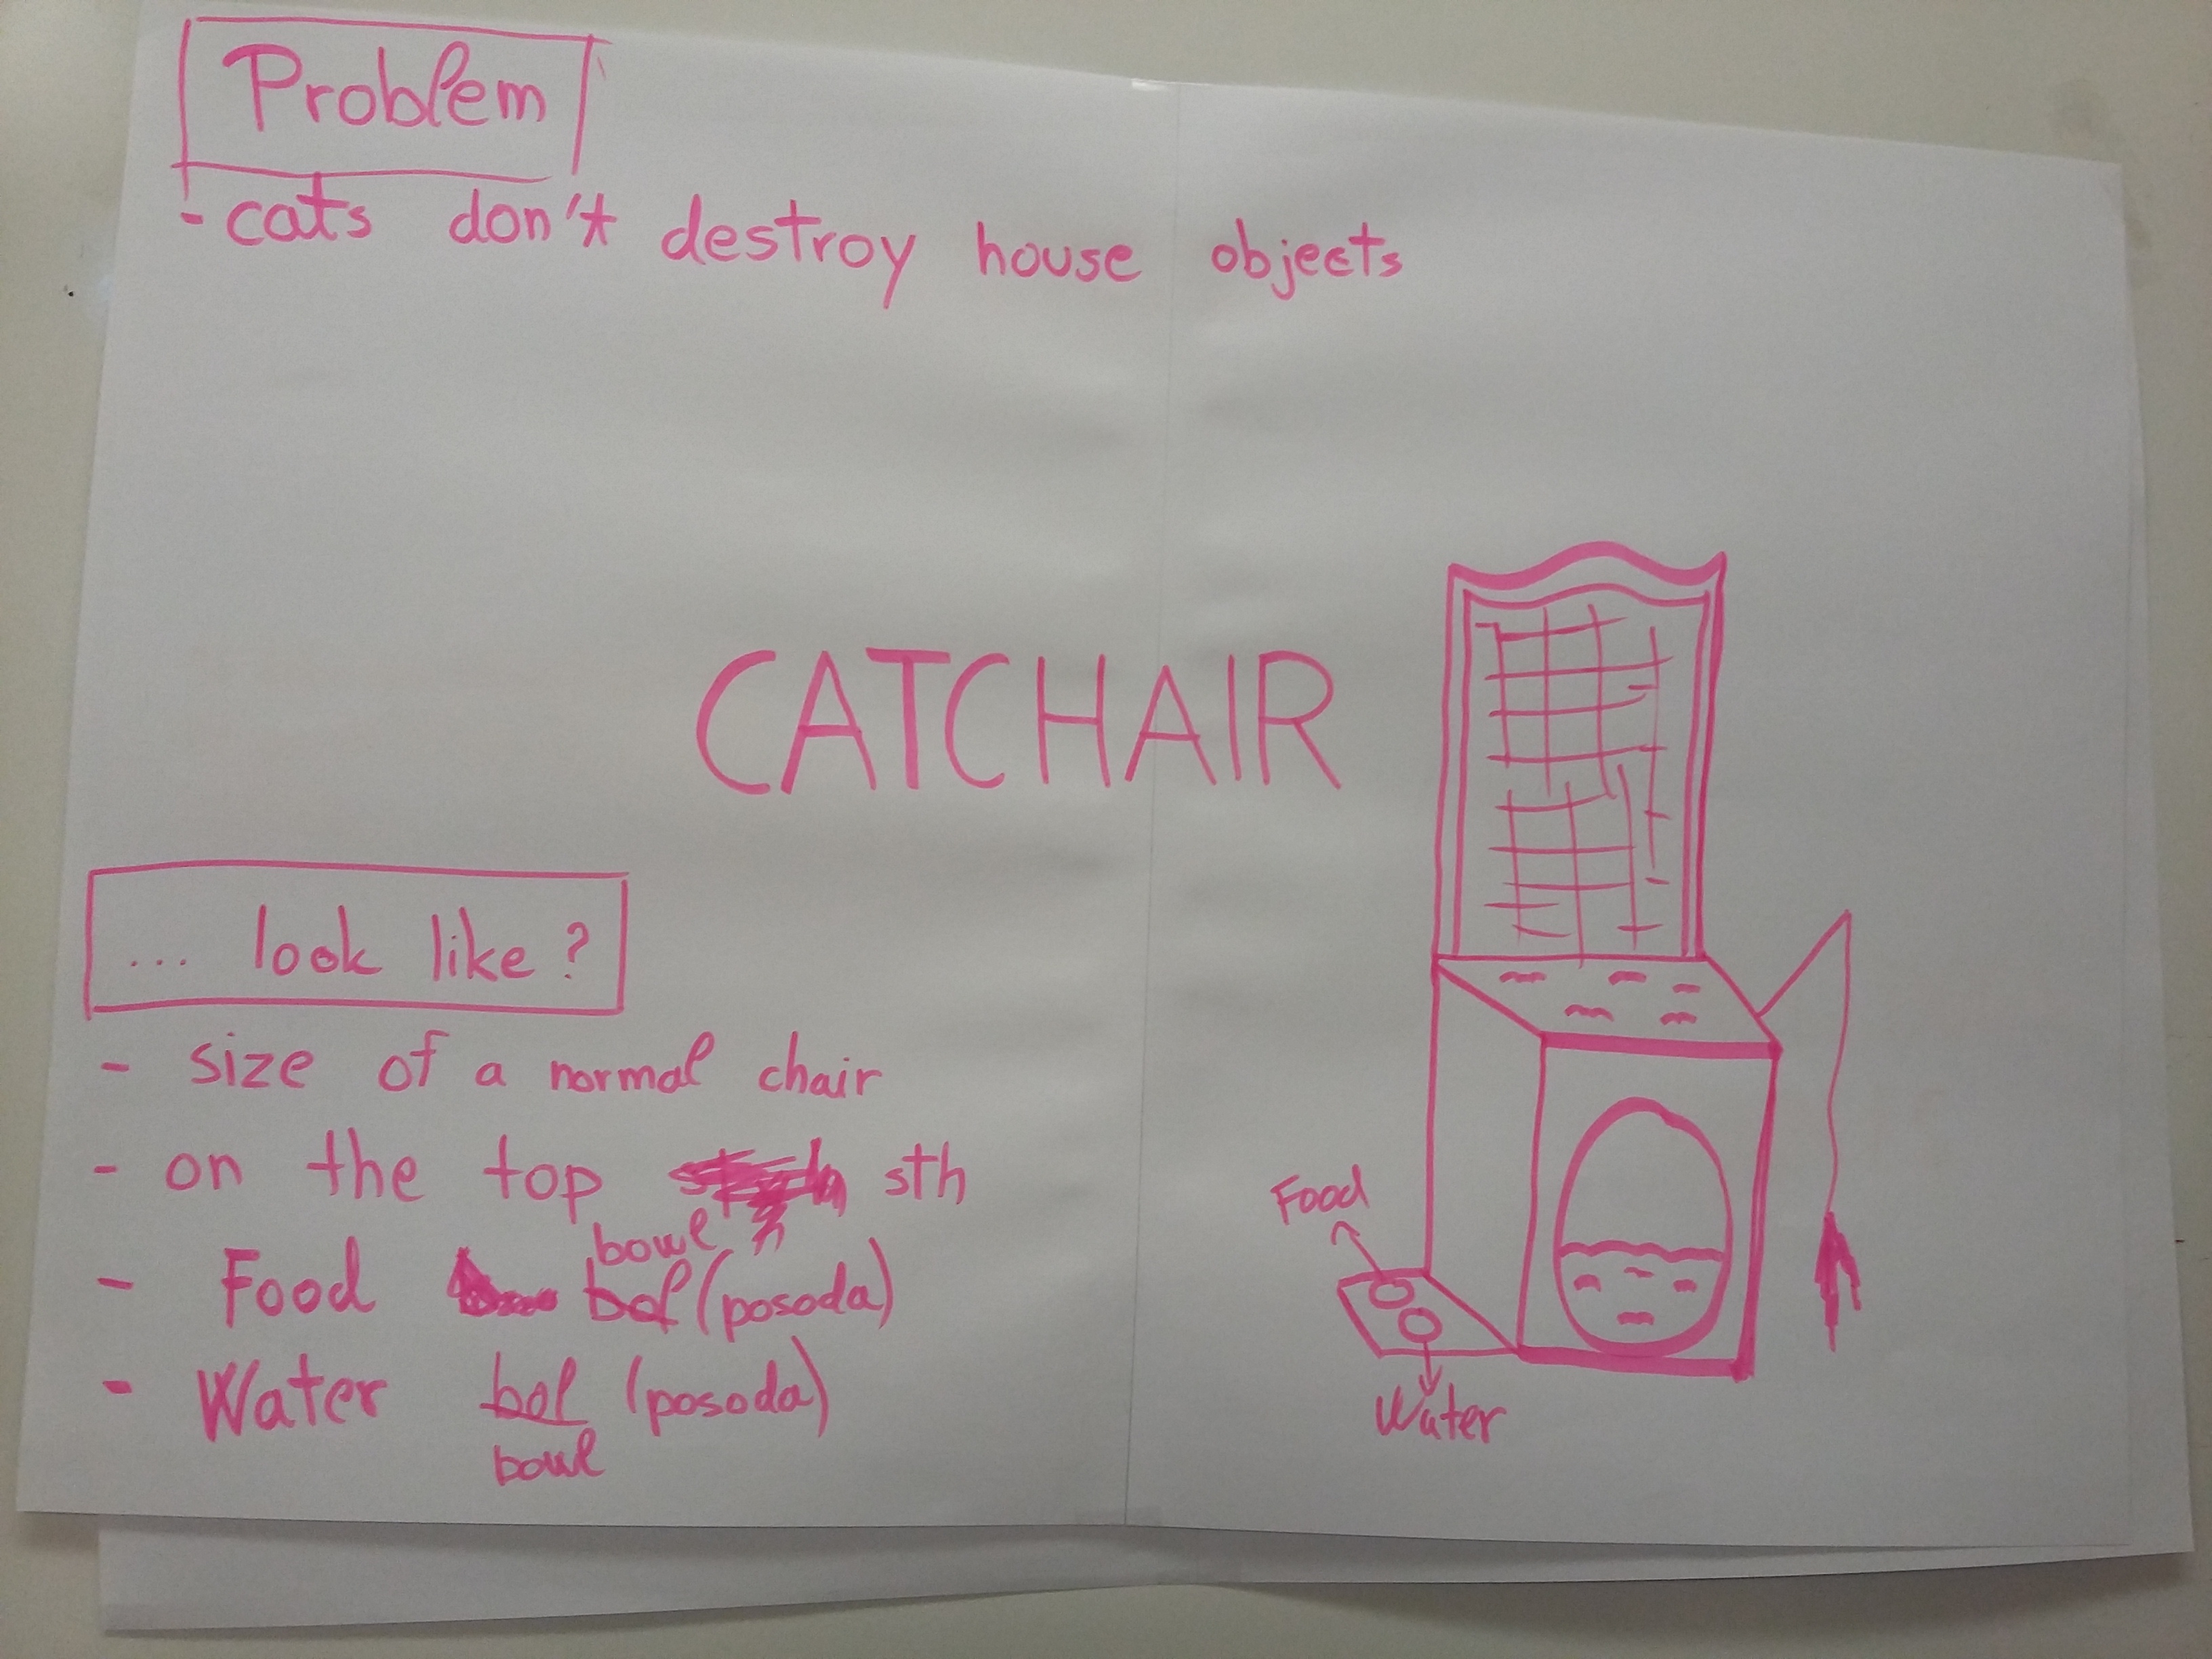 Problem
- cats don't destroy house objects
CATCHAIR
... look like?
- size of a normal chair
- on the top sth
bowl
- Food bol (posoda)
- Water bol (posoda)
bowl
Food
Water